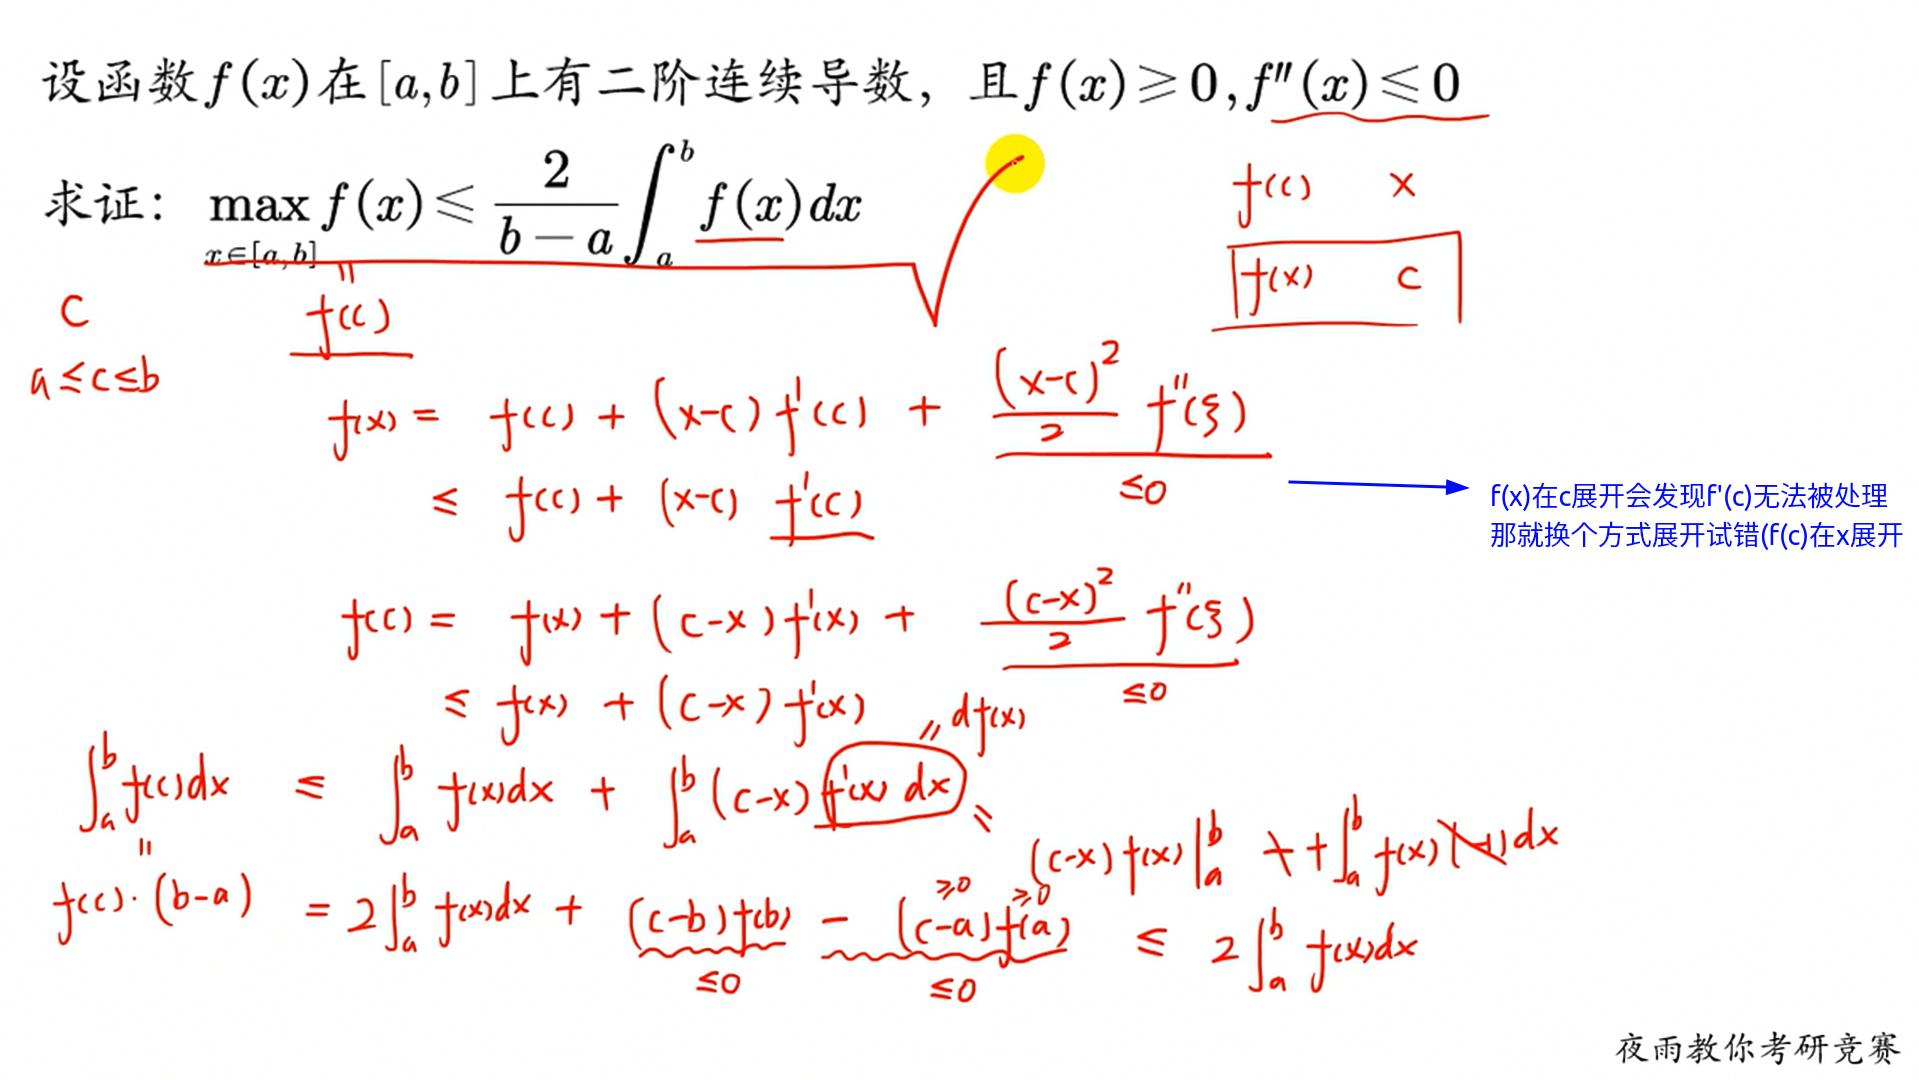 设函数f(x)在[a,b]上有二阶连续导数，且f(x)⩾0,f''(x)⩽0
求证： max f(x)⩽ 2/(b−a) ∫_a^b f(x)dx
x∈[a,b]
f(c) x
f(x) c
c
a≤c≤b
= f(c)
f(x) = f(c) + (x-c) f'(c) + (x-c)²/2 f''(ξ)
≤0
≤ f(c) + (x-c) f'(c)
f(x)在c展开会发现f'(c)无法被处理
那就换个方式展开试错(f(c)在x展开
f(c) = f(x) + (c-x) f'(x) + (c-x)²/2 f''(ξ)
≤0
≤ f(x) + (c-x) f'(x)
= df(x)
∫_a^b f(c)dx ≤ ∫_a^b f(x)dx + ∫_a^b (c-x) f'(x) dx
= (c-x) f(x)|_a^b + ∫_a^b f(x) dx
=
f(c)·(b-a) = 2∫_a^b f(x)dx + (c-b)f(b) - (c-a)f(a) ≤ 2∫_a^b f(x)dx
≥0 ≥0
≤0 ≤0
夜雨教你考研竞赛